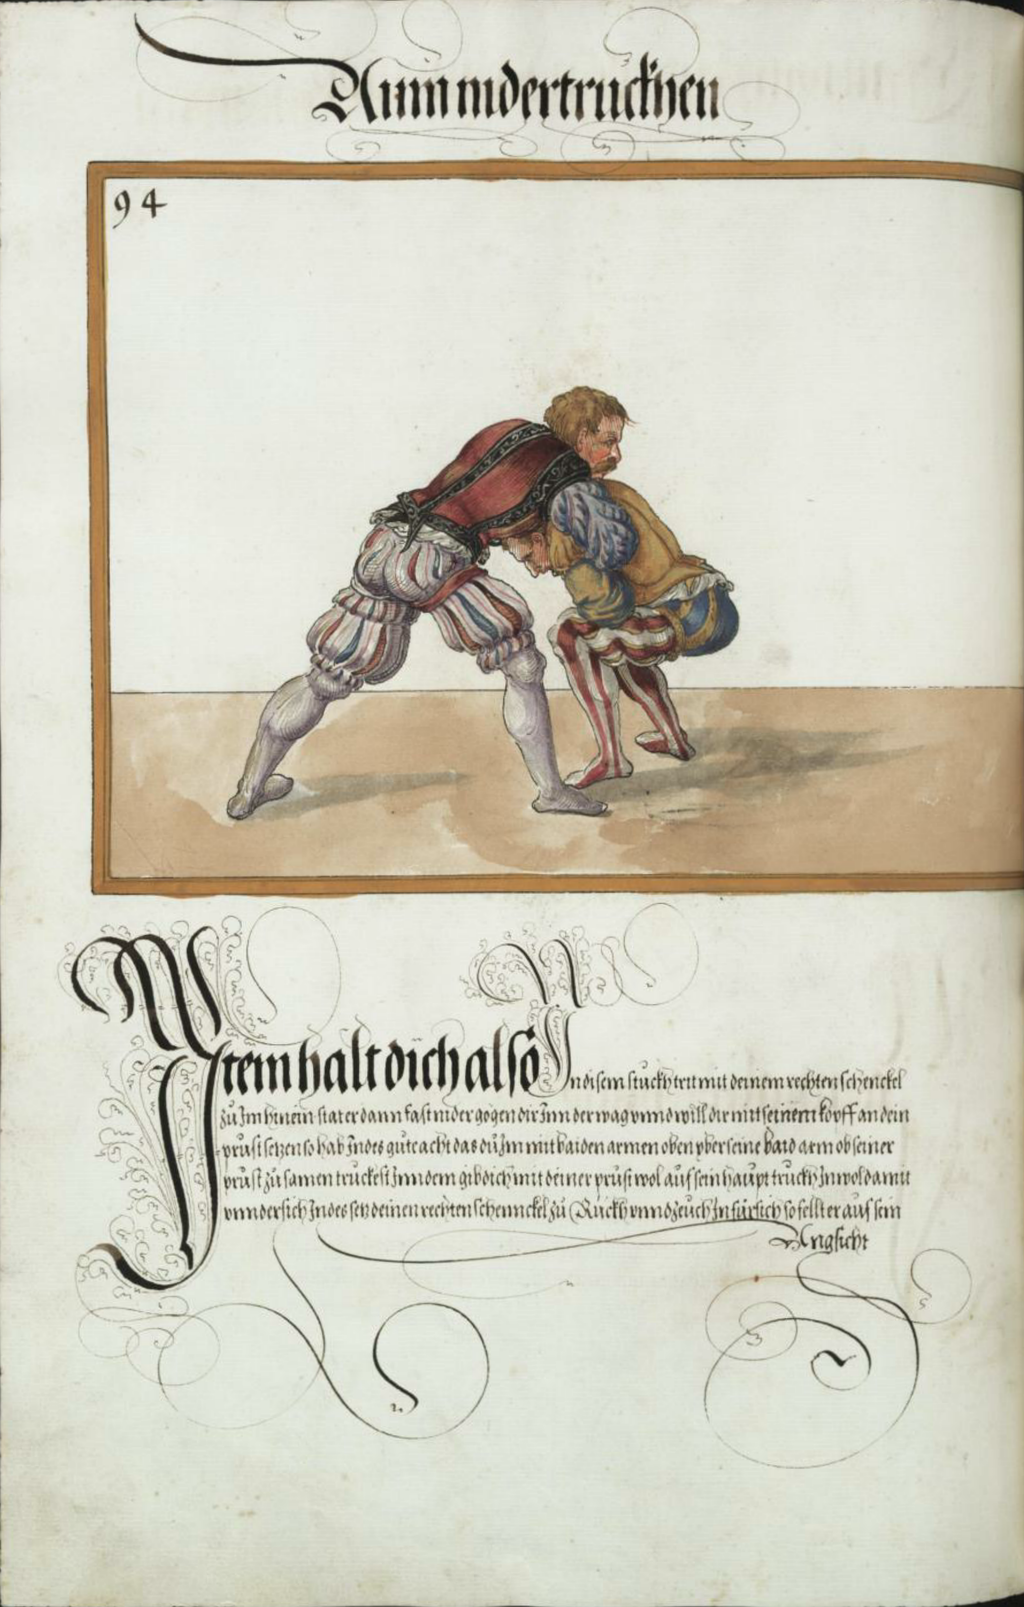 Ainn nidertruckhen
94
Item halt dich also In disem stuckh trit mit deinem rechten schenckel
zu Im hinein stater dann fast nider gegen dir Inn der wag vnnd will dir mit seinem kopff an dein
prust setzen so hab Indes gute acht das du Im mit baiden armen oben vber seine baid arm ob seiner
prust zu samen truckest Inn dem gib dich mit deiner prust wol auf sein haupt truckh In wol damit
vnndersich Indes setz deinen rechten schennckel zu Ruckh vnnd zeuch In fürsich so fellt er auf sein
Angsicht